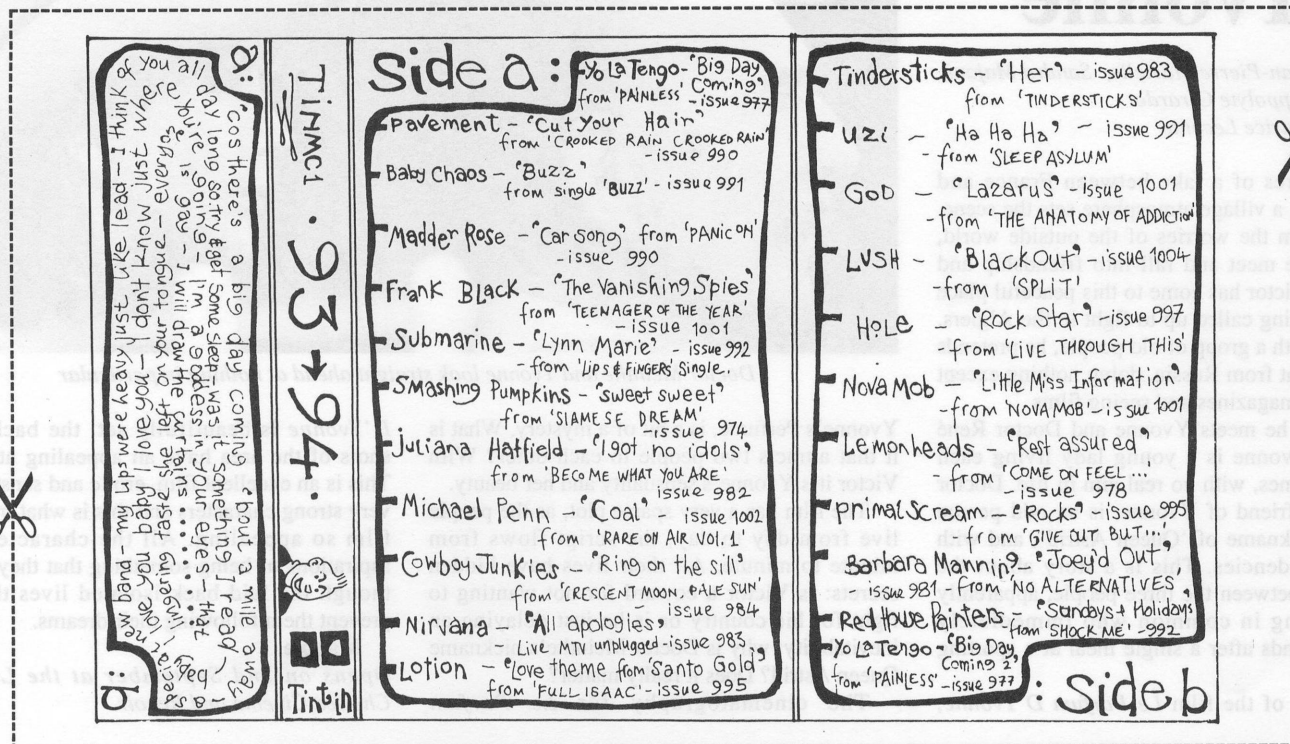 a: "'cos there's a big day coming 'bout a mile away
day long so try & get some sleep
where you're going
my lips were heavy just like lead – I think of you all
b
TiNMC1 · 93 → 94 ·
Tintin
Side a:
Yo La Tengo - "Big Day
Coming"
from 'PAINLESS' - issue 977
Pavement - "Cut Your Hair"
from 'CROOKED RAIN CROOKED RAIN'
- issue 990
Baby Chaos - "Buzz"
from single 'BUZZ' - issue 991
Madder Rose - "Car Song" from 'PANIC ON'
- issue 990
Frank Black - "The Vanishing Spies"
from 'TEENAGER OF THE YEAR'
- issue 1001
Submarine - "Lynn Marie" - issue 992
from Lips & FINGERS Single
Smashing Pumpkins - "sweet sweet"
from 'SIAMESE DREAM'
- issue 974
Juliana Hatfield - "I got no idols"
from 'BECOME WHAT YOU ARE'
- issue 982
Michael Penn - "Coal" - issue 1002
from 'RARE ON AIR VOL. 1'
Cowboy Junkies - "Ring on the sill"
from 'CRESCENT MOON, PALE SUN'
- issue 984
Nirvana - "All Apologies"
Live MTV Unplugged - issue 983
Lotion - "Love theme from Santo Gold"
from 'FULL ISAAC' - issue 995
Tindersticks - "Her" - issue 983
from 'TINDERSTICKS'
Uzi - "Ha Ha Ha" - issue 991
- from 'SLEEP ASYLUM'
GOD - "Lazarus" - issue 1001
- from 'THE ANATOMY OF ADDICTION'
LUSH - "BlackOut" - issue 1004
- from 'SPLIT'
HOLE - "Rock Star" - issue 997
- from 'LIVE THROUGH THIS'
NOVA MOB - "Little Miss Information"
- from 'NOVA MOB' - issue 1001
Lemonheads - "Rest assured"
from - 'COME ON FEEL'
issue 978
Primal Scream - "Rocks" - issue 995
- from 'GIVE OUT BUT...'
Barbara Manning - "Joed Out"
issue 981 - from 'NO ALTERNATIVES'
Red House Painters - "Sundays + Holidays"
- from 'SHOCK ME' - 992
Yo La Tengo - "Big Day
Coming 2"
from 'PAINLESS' - issue 977
: Side b